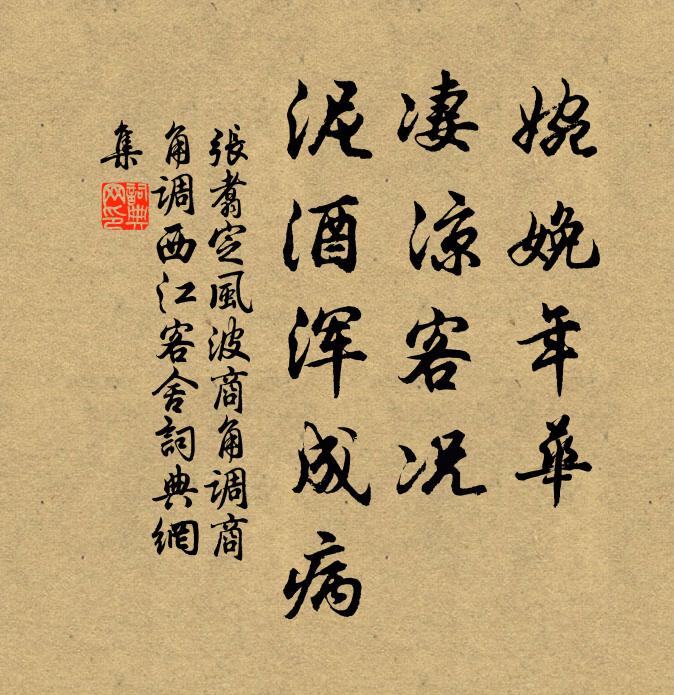 婉娩年華
凄涼客况
泥酒浑成病
張翥定風波商角調商
角調西江客舍詞典網
集
詞典網印